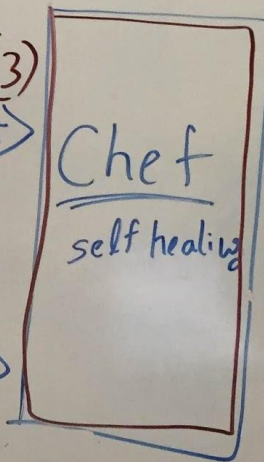 3)
Chef
self healing